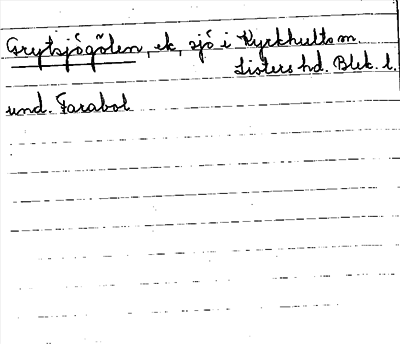 Grytsjögölen, ek, sjö i Kyrkhults sn.
Listers hd. Blek. l.
und. Farabol